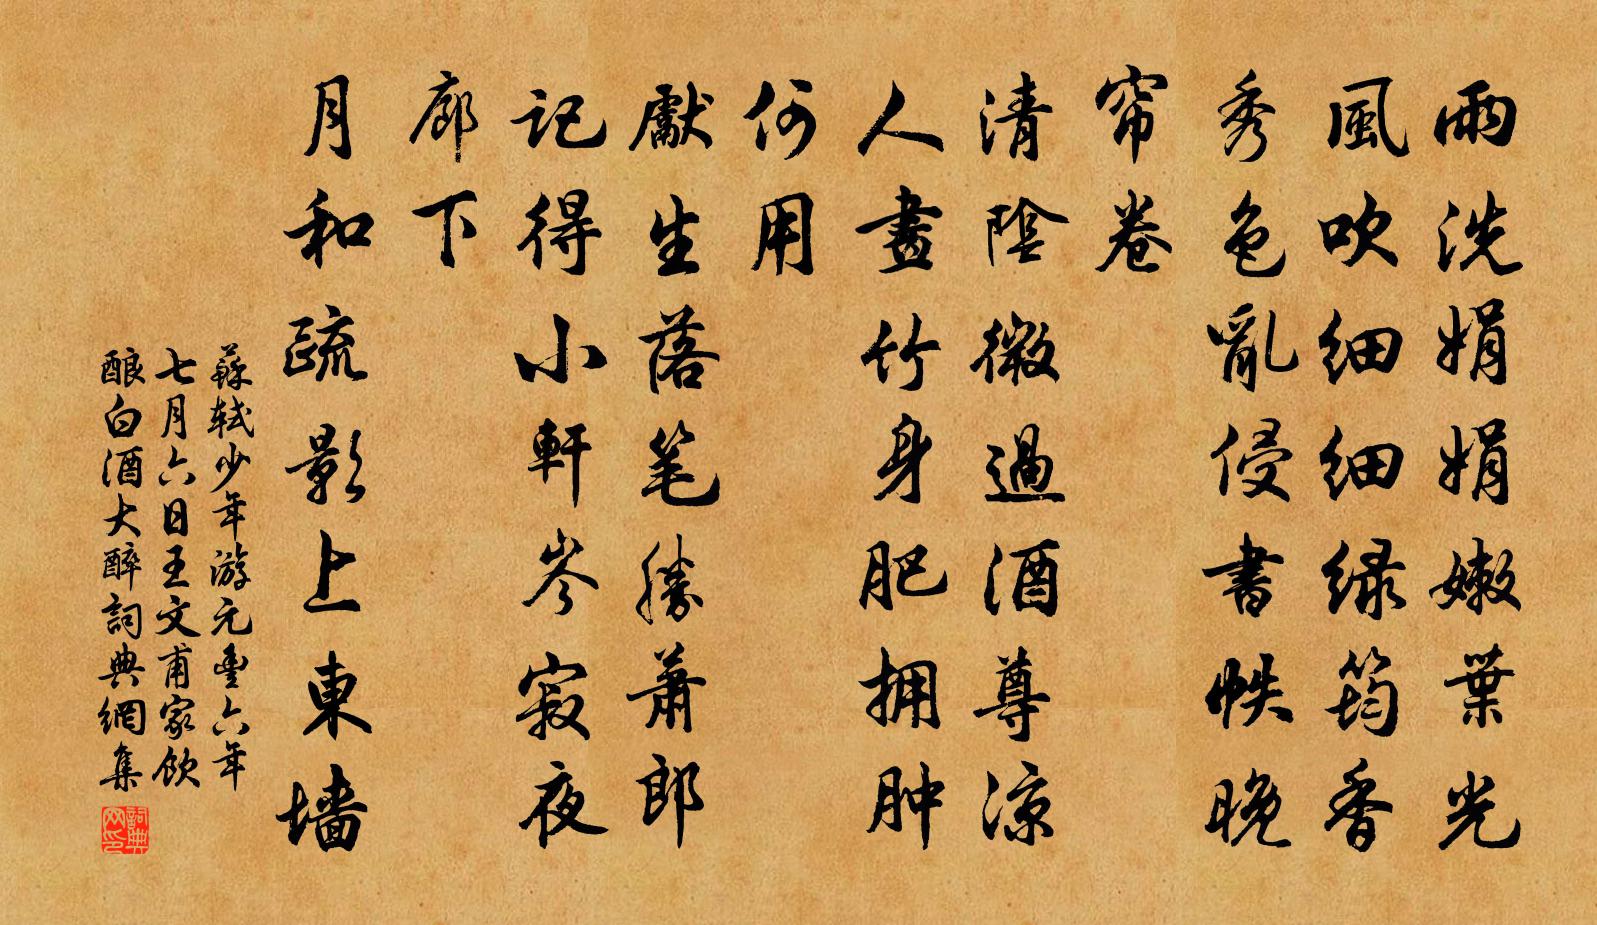 雨洗娟娟嫩葉光
風吹細細绿筠香
秀色亂侵書帙晚
帘卷
清陰微過酒尊涼
人畫竹身肥拥肿
何用
獻生落笔勝蕭郎
記得小軒岑寂夜
廊下
月和疏影上東墙
蘇軾少年游元豐六年
七月六日王文甫家飲
酿白酒大醉詞典網集
詞典
网印